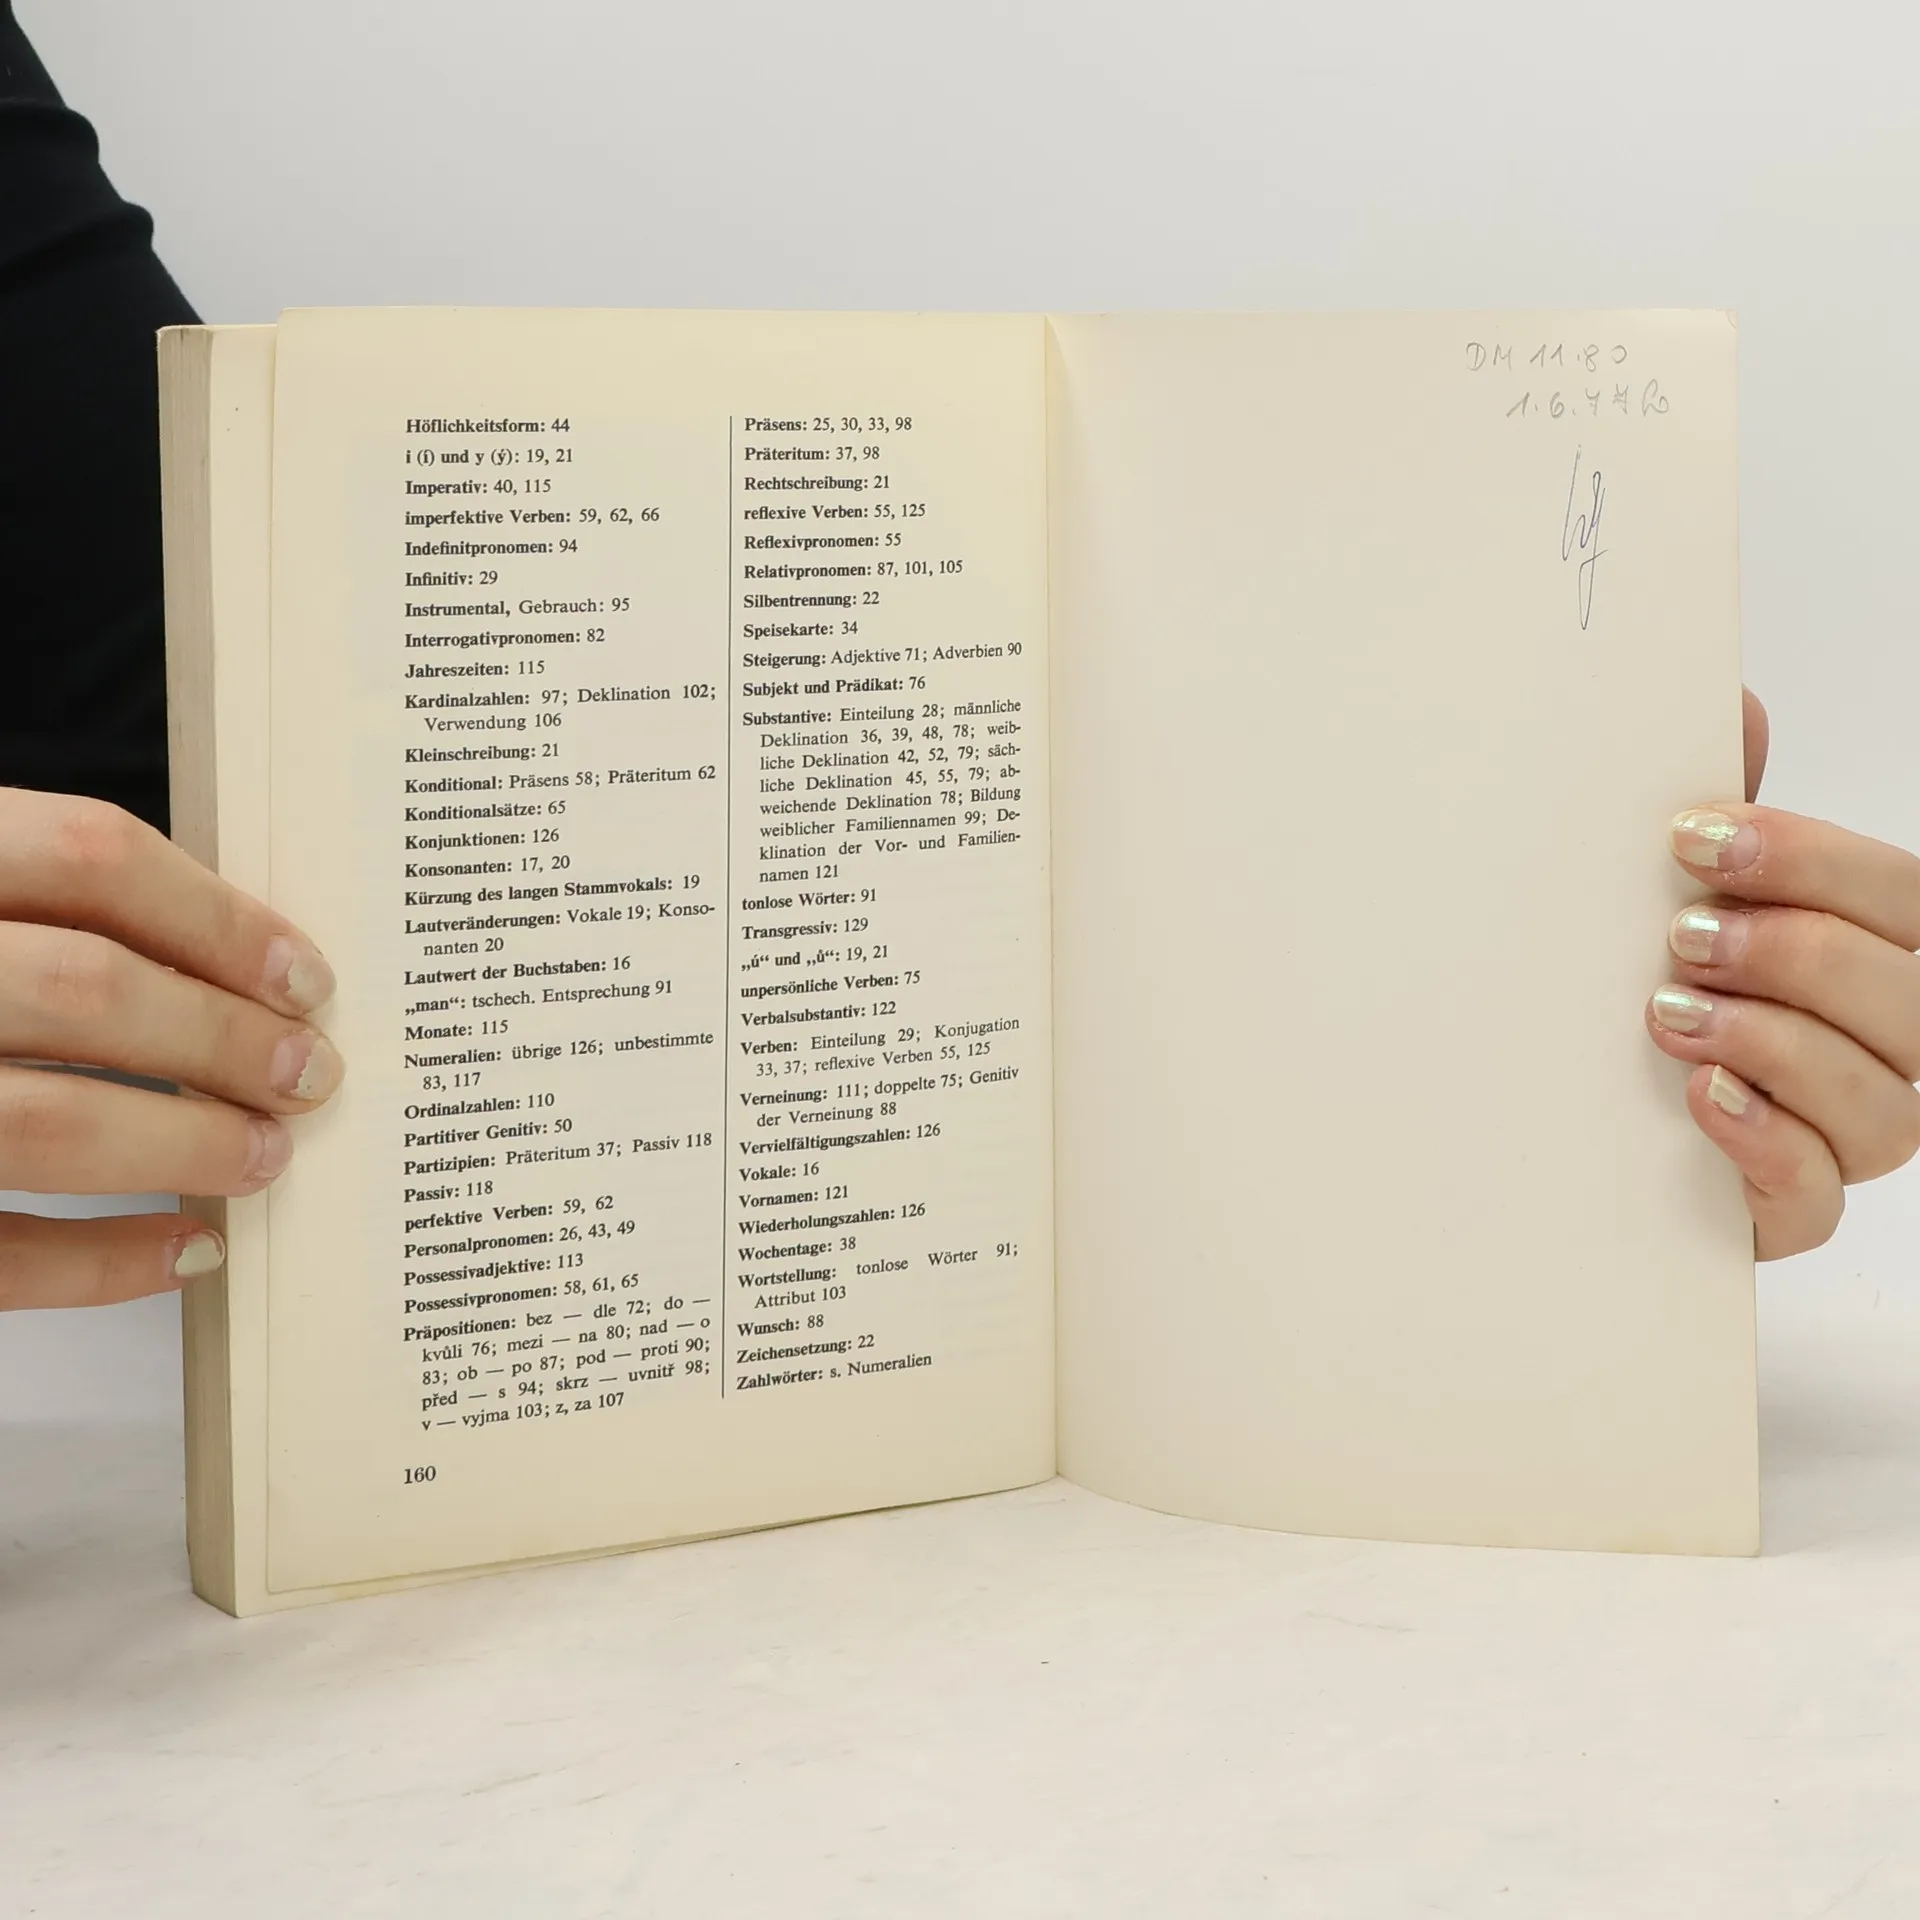 Höflichkeitsform: 44
i (í) und y (ý): 19, 21
Imperativ: 40, 115
imperfektive Verben: 59, 62, 66
Indefinitpronomen: 94
Infinitiv: 29
Instrumental, Gebrauch: 95
Interrogativpronomen: 82
Jahreszeiten: 115
Kardinalzahlen: 97; Deklination 102;
Verwendung 106
Kleinschreibung: 21
Konditional: Präsens 58; Präteritum 62
Konditionalsätze: 65
Konjunktionen: 126
Konsonanten: 17, 20
Kürzung des langen Stammvokals: 19
Lautveränderungen: Vokale 19; Konso-
nanten 20
Lautwert der Buchstaben: 16
„man“: tschech. Entsprechung 91
Monate: 115
Numeralien: übrige 126; unbestimmte
83, 117
Ordinalzahlen: 110
Partitiver Genitiv: 50
Partizipien: Präteritum 37; Passiv 118
Passiv: 118
perfektive Verben: 59, 62
Personalpronomen: 26, 43, 49
Possessivadjektive: 113
Possessivpronomen: 58, 61, 65
Präpositionen: bez — dle 72; do —
kvůli 76; mezi — na 80; nad — o
83; ob — po 87; pod — proti 90;
před — s 94; skrz — uvnitř 98;
v — vyjma 103; z, za 107
160
Präsens: 25, 30, 33, 98
Präteritum: 37, 98
Rechtschreibung: 21
reflexive Verben: 55, 125
Reflexivpronomen: 55
Relativpronomen: 87, 101, 105
Silbentrennung: 22
Speisekarte: 34
Steigerung: Adjektive 71; Adverbien 90
Subjekt und Prädikat: 76
Substantive: Einteilung 28; männliche
Deklination 36, 39, 48, 78; weib-
liche Deklination 42, 52, 79; säch-
liche Deklination 45, 55, 79; ab-
weichende Deklination 78; Bildung
weiblicher Familiennamen 99; De-
klination der Vor- und Familien-
namen 121
tonlose Wörter: 91
Transgressiv: 129
„ú“ und „ů“: 19, 21
unpersönliche Verben: 75
Verbalsubstantiv: 122
Verben: Einteilung 29; Konjugation
33, 37; reflexive Verben 55, 125
Verneinung: 111; doppelte 75; Genitiv
der Verneinung 88
Vervielfältigungszahlen: 126
Vokale: 16
Vornamen: 121
Wiederholungszahlen: 126
Wochentage: 38
Wortstellung: tonlose Wörter 91;
Attribut 103
Wunsch: 88
Zeichensetzung: 22
Zahlwörter: s. Numeralien
DM 11.80
1.6.77